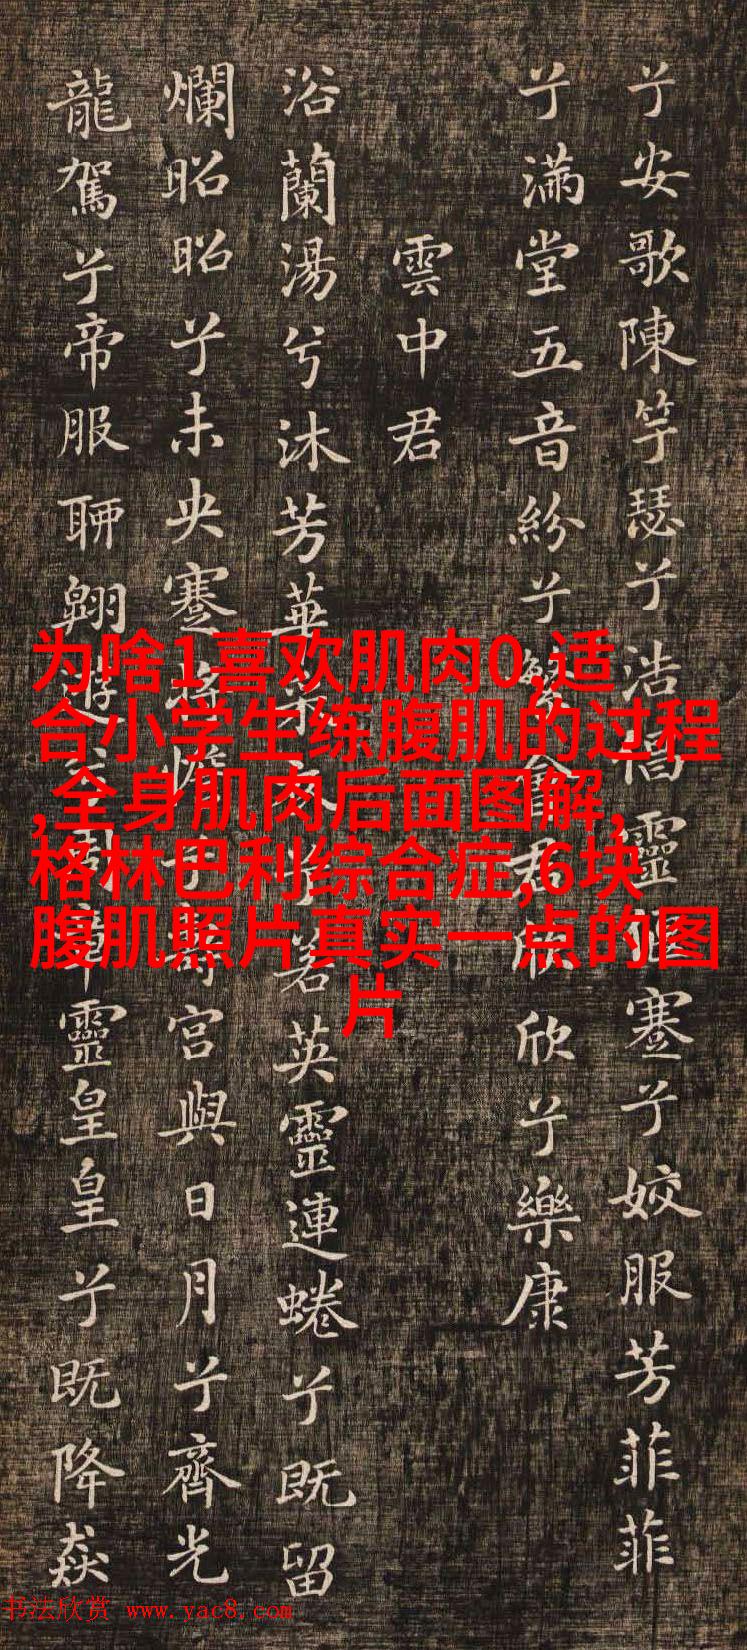 兮安歌陳竽瑟兮浩倡靈偃蹇兮姣服芳菲菲
兮滿堂五音紛兮繁會君欣欣兮樂康
雲中君
浴蘭湯兮沐芳華采衣兮若英靈連蜷兮既留
爛昭昭兮未央蹇將憺兮壽宮與日月兮齊光
龍駕兮帝服聊翱遊兮周章靈皇皇兮既降猋
为啥1喜欢肌肉0,适
合小学生练腹肌的过程
,全身肌肉后面图解,
格林巴利综合症,6块
腹肌照片真实一点的图
片
书法欣赏 www.yac8.com